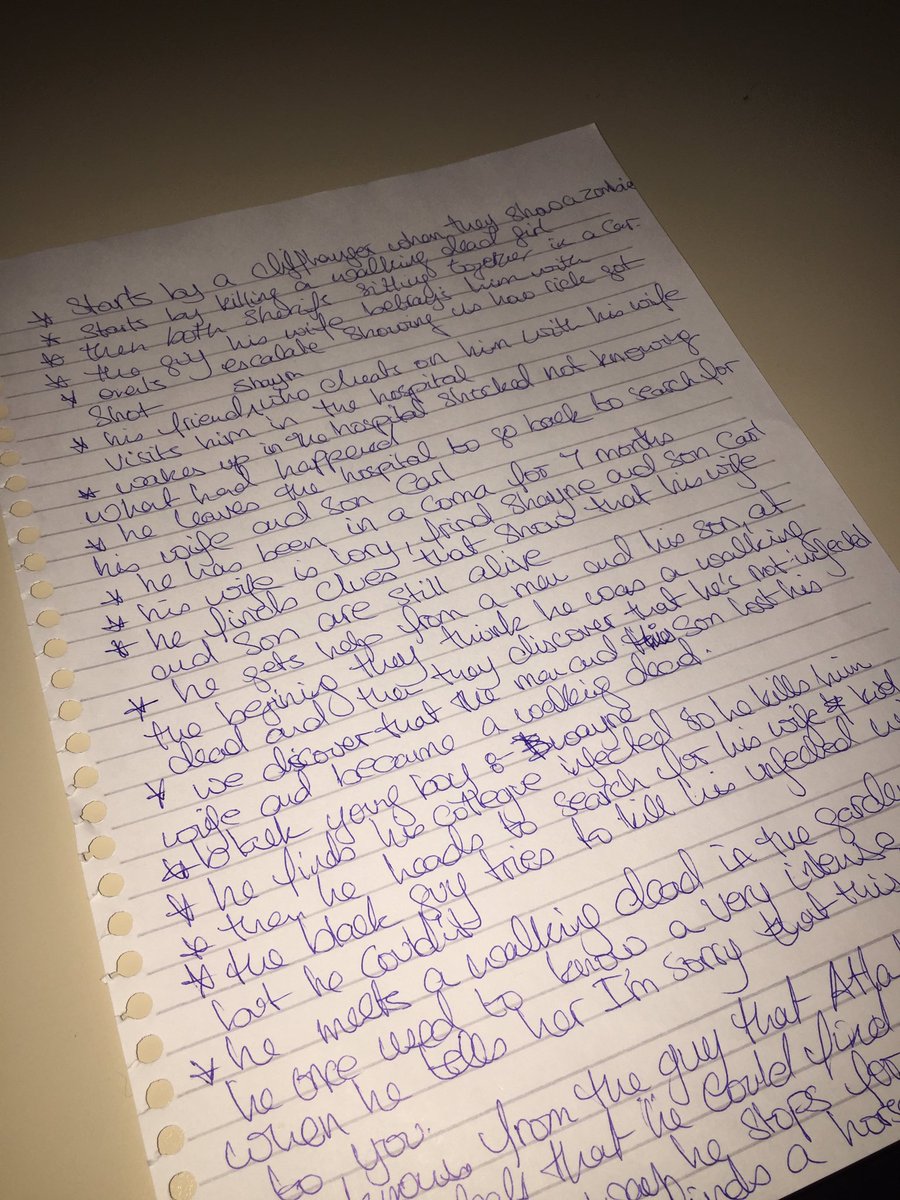 * Starts by a cliffhanger when they shoot a zombie
* Starts by killing a walking dead girl
* then both sheriffs sitting together in a car.
* the guy his wife betrays him with
* events escalate showing us how rick got
shot
Shayn
* his friend who cheats on him with his wife
visits him in the hospital
* wakes up in the hospital shocked not knowing
what had happened
* he leaves the hospital to go back to search for
his wife and son Carl
* he has been in a coma for 7 months
* his wife is lory, friend Shayne and son Carl
* he finds clues that show that his wife
and son are still alive
* he gets help from a man and his son at
the begining they think he was a walking
dead and then they discover that he's not infected
* we discover that the man and son lost his
wife and became a walking dead.
* black young boy:
* he finds his collegue infected so he kills him
* then he heads to search for his wife & kid
* the black guy tries to kill his infected
but he couldn't
* he meets a walking dead in the garden
he once used to know a very intense
when he tells her I'm sorry that this
to you.
knows from the guy that Atla
that he could find
he stops for
finds a horse